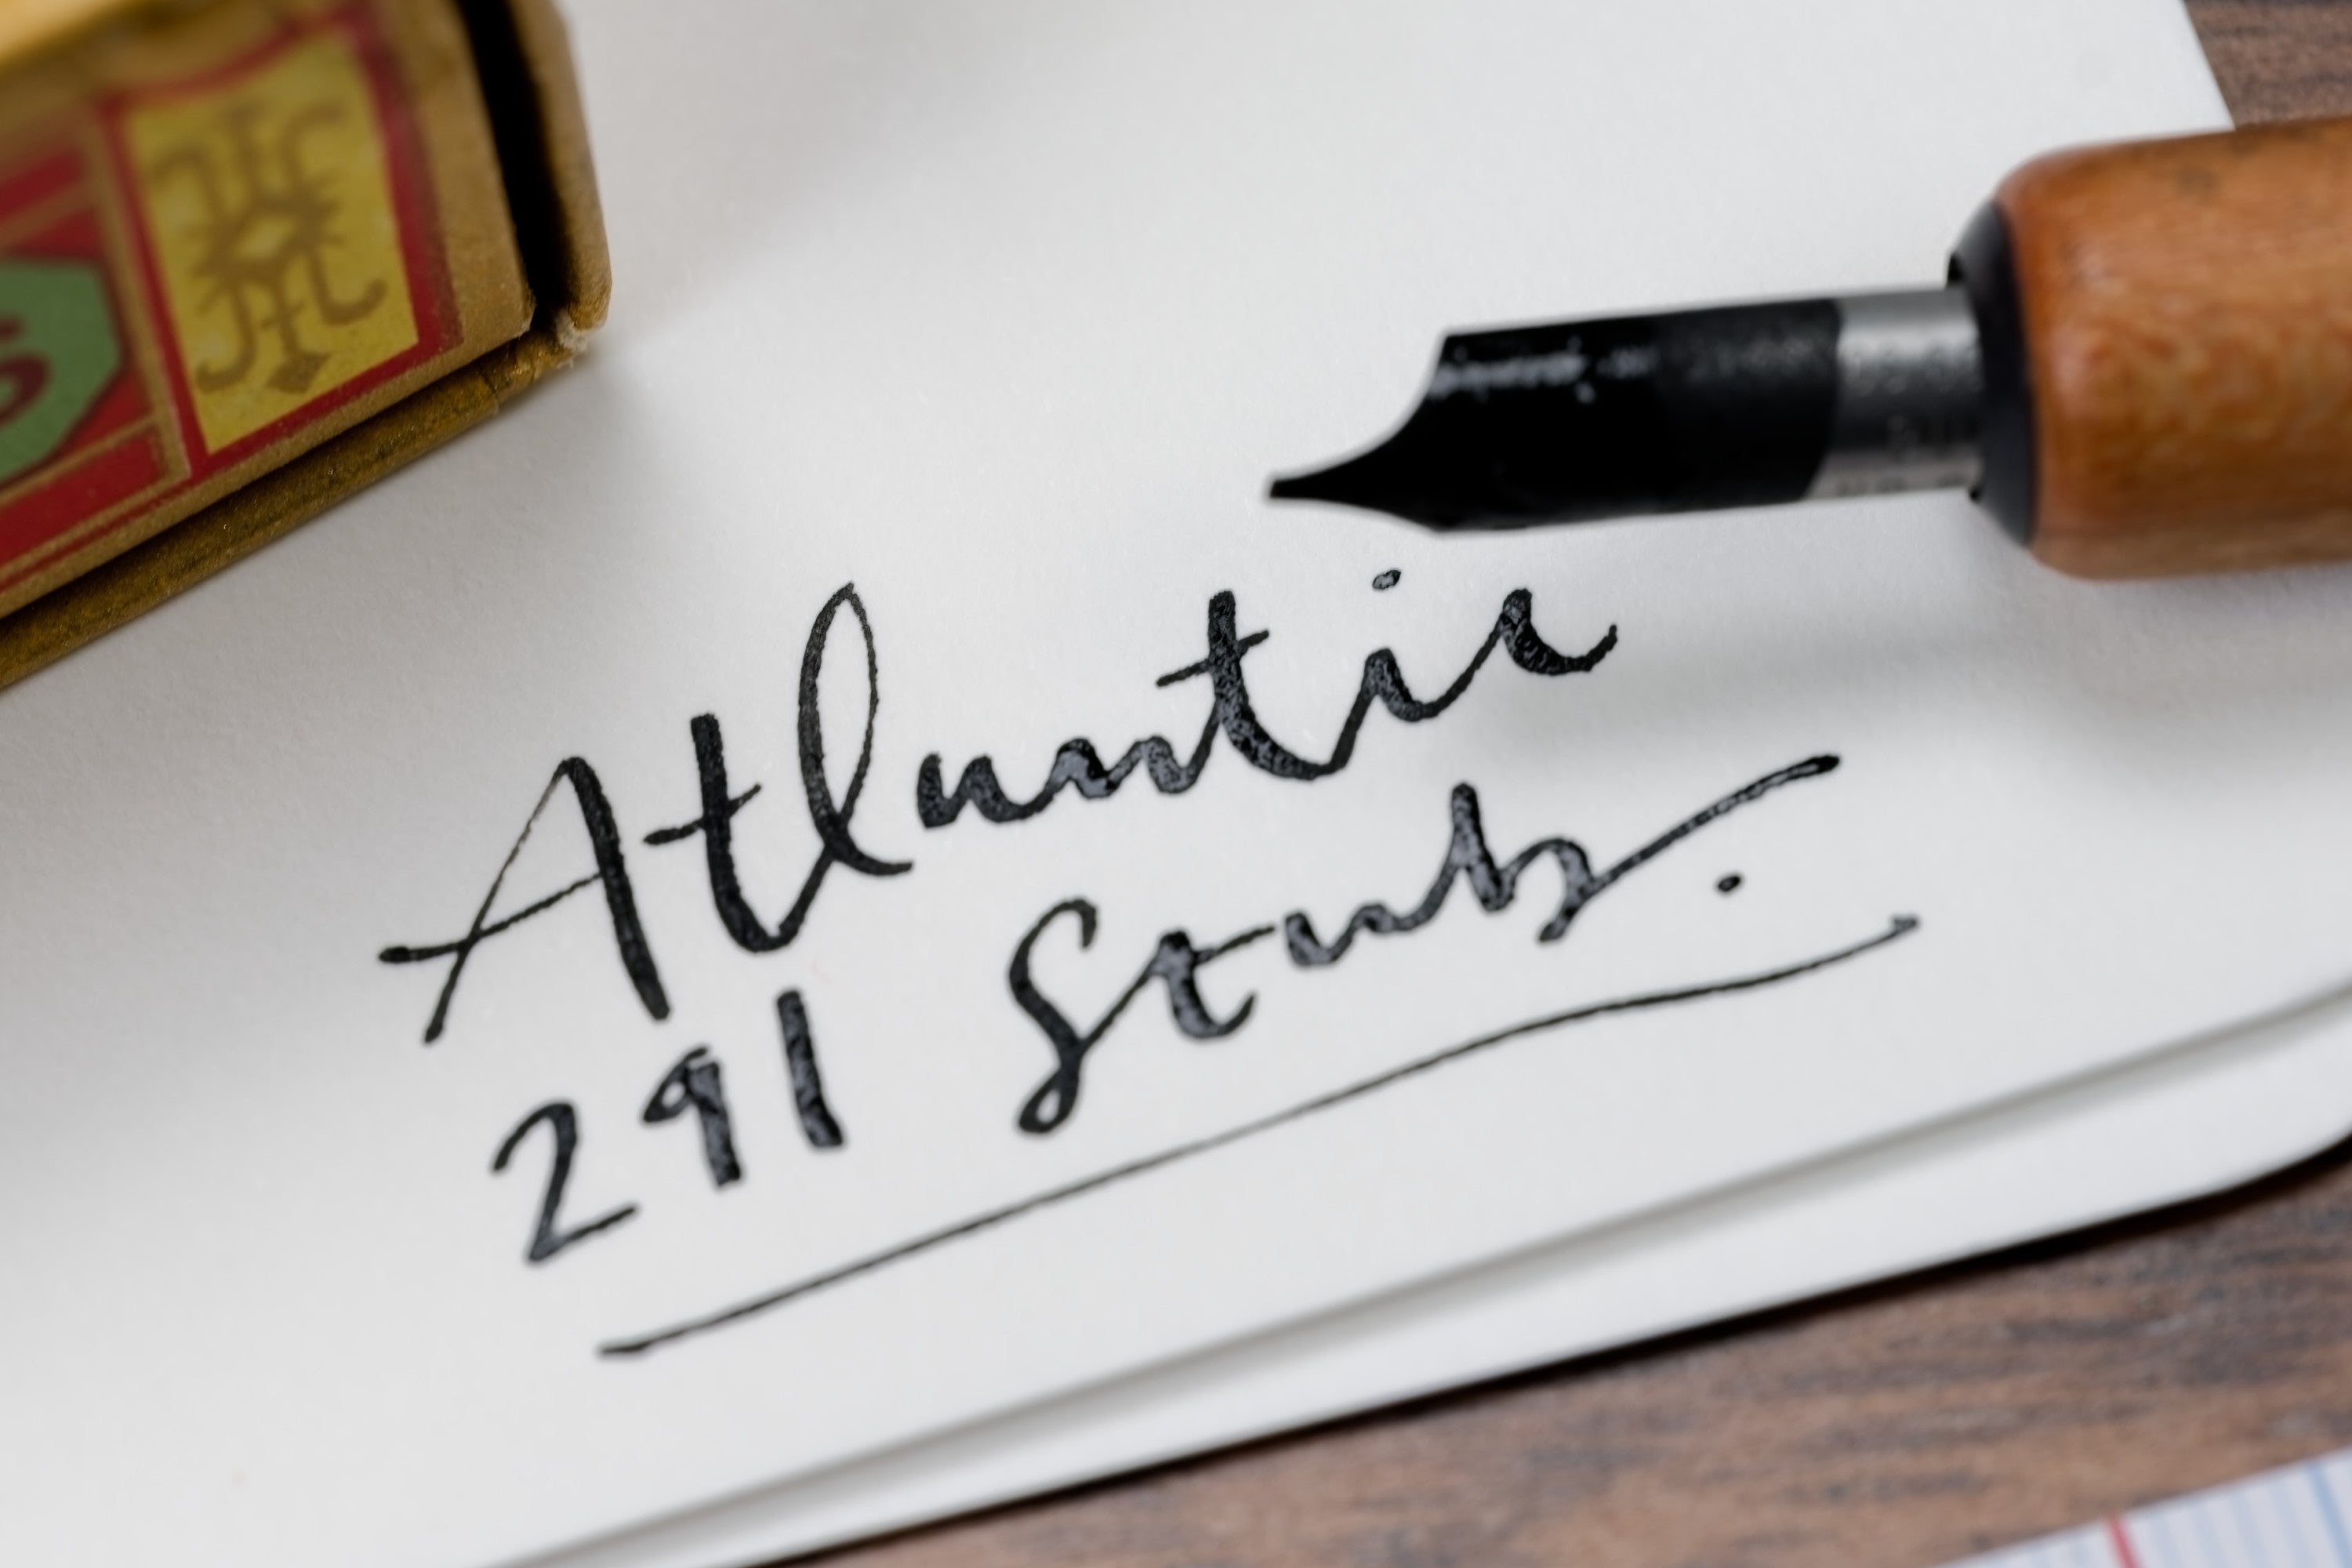 Atlantic
291 Stub.
S